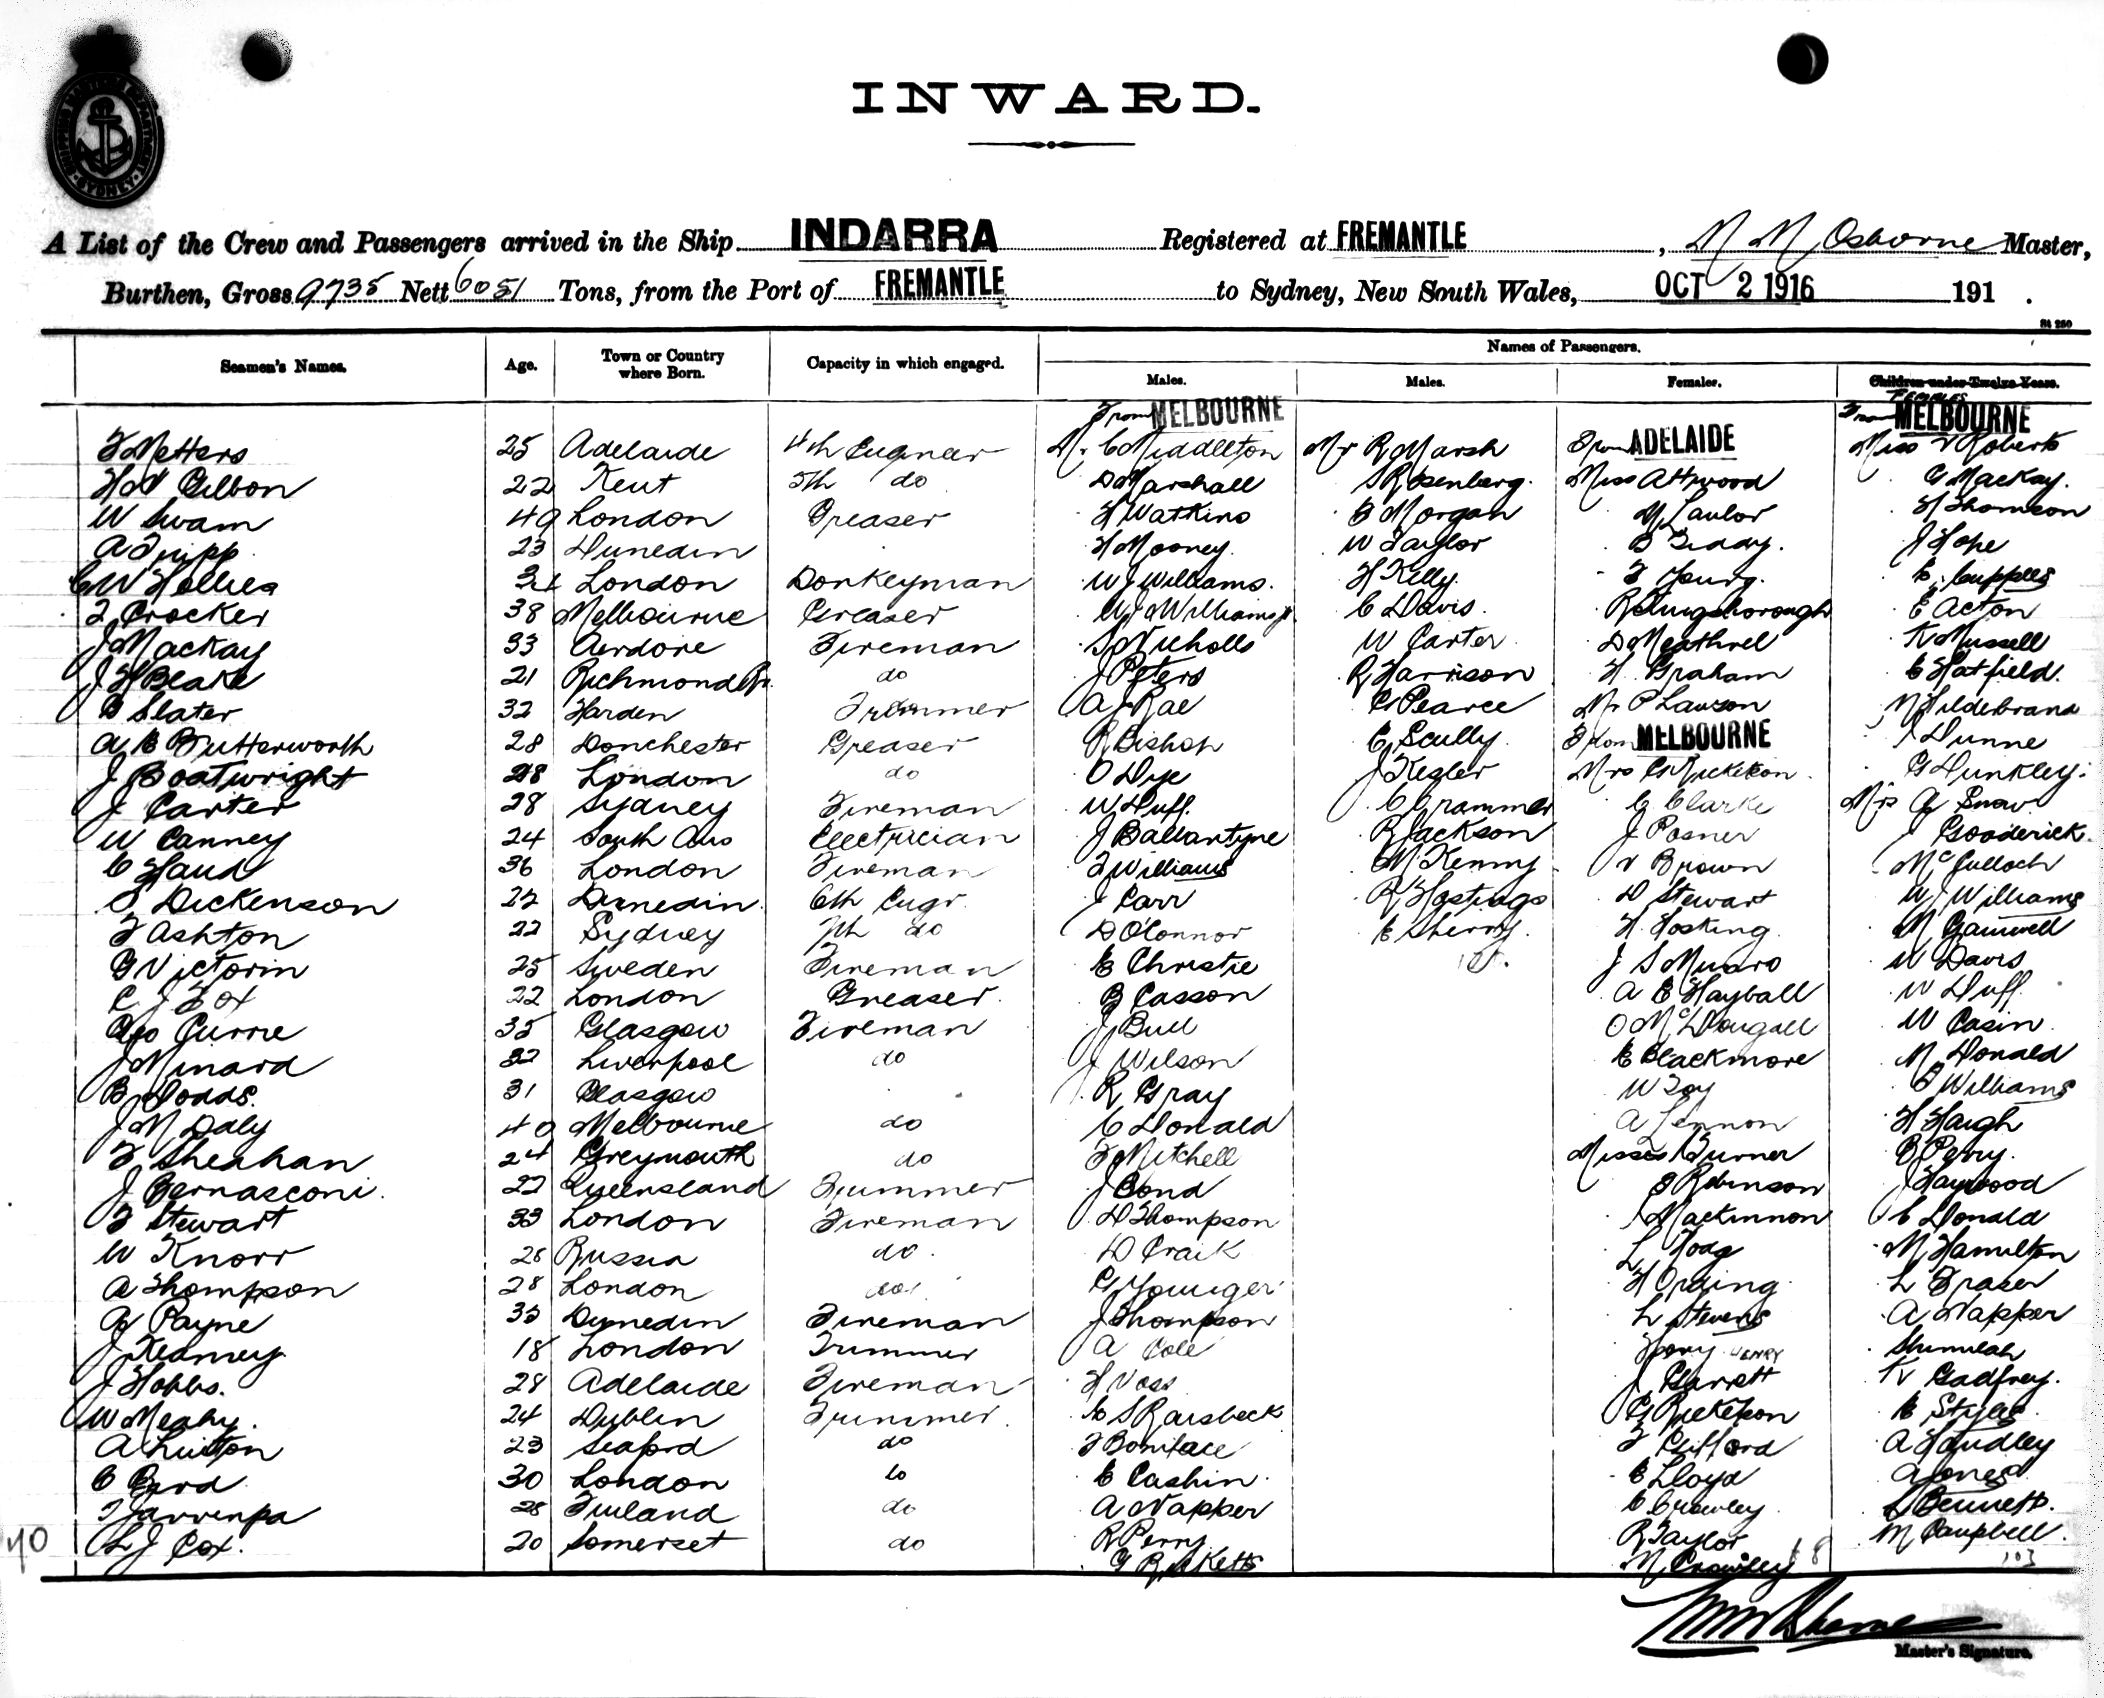 INWARD.
A List of the Crew and Passengers arrived in the Ship INDARRA Registered at FREMANTLE, M M Osborne Master,
Burthen, Gross 9735 Nett 6051 Tons, from the Port of FREMANTLE to Sydney, New South Wales, OCT 2 1916 191 .
Seamen's Names. Age. Town or Country where Born. Capacity in which engaged. Names of Passengers.
Males. Males. Females. Children under Twelve Years. FEMALES
From MELBOURNE From MELBOURNE
F Metters 25 Adelaide 4th Engineer Mr C Middleton Mr R Marsh From ADELAIDE Miss V Roberts
H V Gibbon 22 Kent 5th do D Marshall S Rosenberg. Miss Attwood G Mackay.
W Swain 49 London Greaser H Watkins B Morgan Taylor H Thomson
A Tripp 23 Dunedin H Mooney. W Taylor Giddy. J Hope
C W Hollies London Donkeyman W J Williams. H Kelly. F Young. E. Cuppples
Crocker 38 Melbourne Greaser W J Williams C Davis. R Kingsborough E Acton
J Mackay 33 Fireman S Nicholls W Carter D Meathrel K Mussell
J H Blake 21 Richmond do J Peters R Harrison H. Graham C Hatfield.
B Slater 32 Harden Trimmer A J Rae C Pearce Mr P Lawson M Hildebrand
A E Butterworth 28 Donchester Greaser R Bishop C Scully. From MELBOURNE J Dunne
J Boatwright 28 London do O Dye J Kesler Mrs G Ricketson G Dunkley.
J Carter 28 Sydney Fireman W Duff. C Crammer C Clarke Mrs A Snow
W Canney 24 South Aus Electrician J Ballantyne R Jackson J Posner J Gooderick.
C Hand 36 London Fireman F Williams M Kenny V Brown McCulloch
S Dickenson 22 Dunedin. 6th Engr. J Carr R Hastings D Stewart W J Williams
F Ashton 22 Sydney 7th do D O'Connor E Sherry. H. Hosking. M Gamwell
G Victorin 25 Sweden Fireman E Christie J S Munro W Davis
C J Fox 22 London Greaser. G Casson A E Hayball W Duff.
Geo Currie 35 Glasgow Fireman J Bull O McDougall W Casin
J Minard 32 Liverpool do J Wilson E Blackmore M Donald
B Dodds. 31 Glasgow R Gray W Toy C Williams
J M Daly 40 Melbourne do C Donald A Lennon H Haigh
F Sheahan 24 Greymouth do F Mitchell Misses Turner B Perry.
J Bernasconi. 22 Queensland Trimmer J Bond S Robinson J Haywood
F Stewart 33 London Fireman D Thompson J Mackinnon C Donald
W Knorr 28 Russia do. D Craik L Hoag M Hamilton
A Thompson 28 London do. G Younger H Ording L Fraser
G Payne 35 Dunedin Fireman J Thompson L Stevens A Napper
J Kearney 18 London Trimmer A Cole Henry HENRY
J Hobbs. 28 Adelaide Fireman H Voss J Garrett K Gadfrey.
W Meahy. 24 Dublin Trimmer. S Raisbeck G Ricketson E Styles
A Luiton 23 Seaford do F Boniface F Gifford A Handley
C Bird 30 London do E Cashin. E Lloyd A Jones
Jarvenpa 28 Finland do A Napper C Crowley L Bennett.
70 L J Cox. 20 Somerset do R Perry R Taylor M Campbell.
G Ricketts M Crowley 103
Master's Signature.